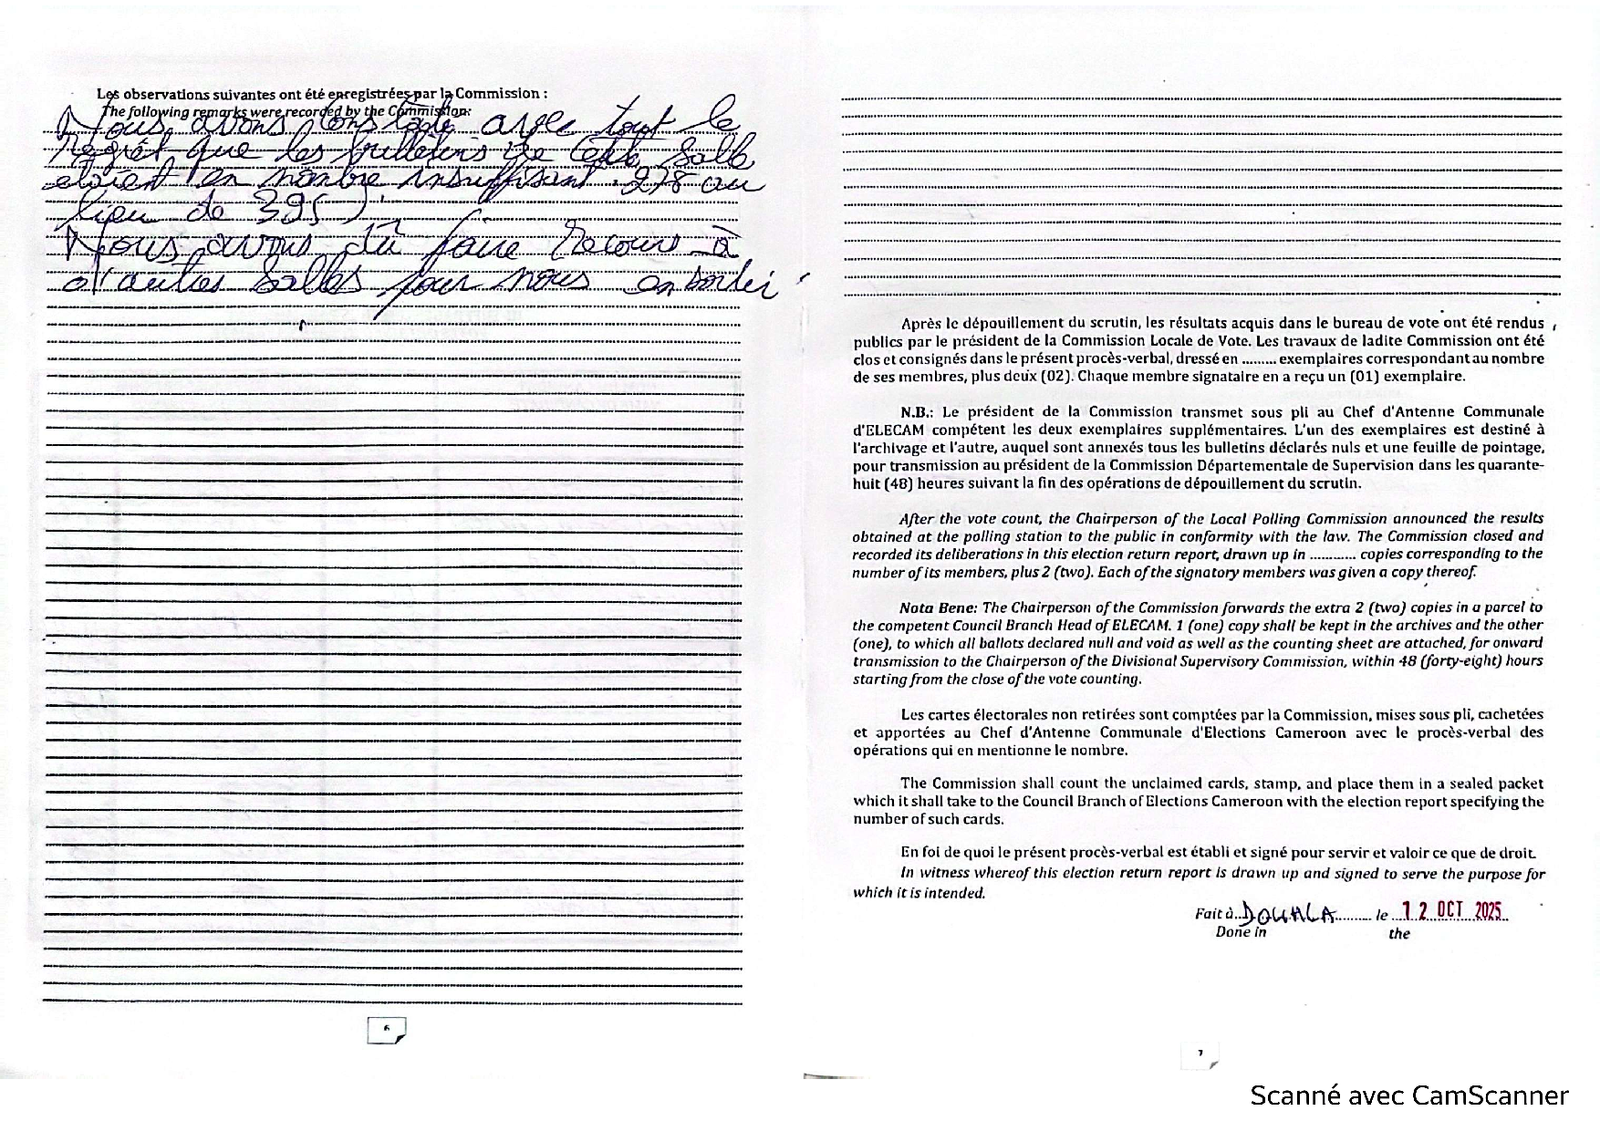 Les observations suivantes ont été enregistrées par la Commission :
The following remarks were recorded by the Commission:
Nous avons constaté avec tout le
regret que les bulletins de cette salle
étaient en nombre insuffisant. 278 au
lieu de 395)
Nous avons dû faire recours à
d'autres salles pour nous en sortir
6
Après le dépouillement du scrutin, les résultats acquis dans le bureau de vote ont été rendus
publics par le président de la Commission Locale de Vote. Les travaux de ladite Commission ont été
clos et consignés dans le présent procès-verbal, dressé en ......... exemplaires correspondant au nombre
de ses membres, plus deux (02). Chaque membre signataire en a reçu un (01) exemplaire.
N.B.: Le président de la Commission transmet sous pli au Chef d'Antenne Communale
d'ELECAM compétent les deux exemplaires supplémentaires. L'un des exemplaires est destiné à
l'archivage et l'autre, auquel sont annexés tous les bulletins déclarés nuls et une feuille de pointage,
pour transmission au président de la Commission Départementale de Supervision dans les quarante-
huit (48) heures suivant la fin des opérations de dépouillement du scrutin.
After the vote count, the Chairperson of the Local Polling Commission announced the results
obtained at the polling station to the public in conformity with the law. The Commission closed and
recorded its deliberations in this election return report, drawn up in ............ copies corresponding to the
number of its members, plus 2 (two). Each of the signatory members was given a copy thereof.
Nota Bene: The Chairperson of the Commission forwards the extra 2 (two) copies in a parcel to
the competent Council Branch Head of ELECAM. 1 (one) copy shall be kept in the archives and the other
(one), to which all ballots declared null and void as well as the counting sheet are attached, for onward
transmission to the Chairperson of the Divisional Supervisory Commission, within 48 (forty-eight) hours
starting from the close of the vote counting.
Les cartes électorales non retirées sont comptées par la Commission, mises sous pli, cachetées
et apportées au Chef d'Antenne Communale d'Elections Cameroon avec le procès-verbal des
opérations qui en mentionne le nombre.
The Commission shall count the unclaimed cards, stamp, and place them in a sealed packet
which it shall take to the Council Branch of Elections Cameroon with the election report specifying the
number of such cards.
En foi de quoi le présent procès-verbal est établi et signé pour servir et valoir ce que de droit.
In witness whereof this election return report is drawn up and signed to serve the purpose for
which it is intended.
Fait à DOUALA le 12 OCT 2025
Done in the
7
Scanné avec CamScanner